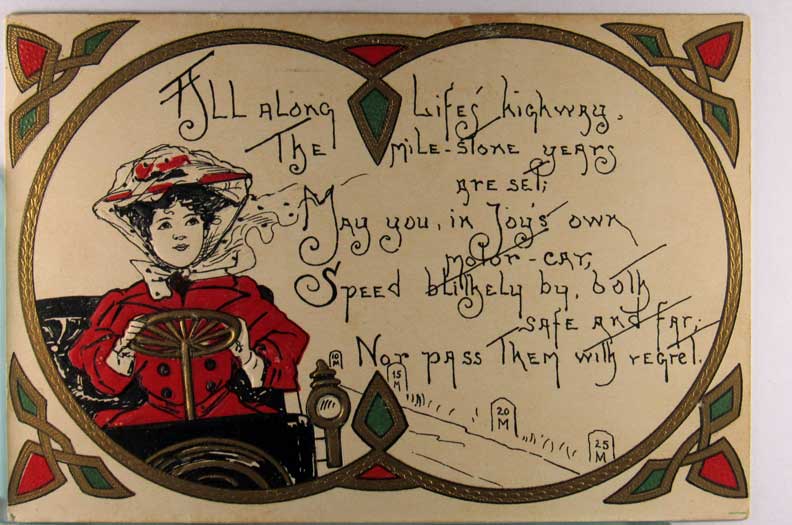 All along Life's highway,
The mile-stone years
are set;
May you, in Joy's own
motor-car,
Speed blithely by, both
safe and far;
Nor pass them with regret.
10
M
15
M
20
M
25
M